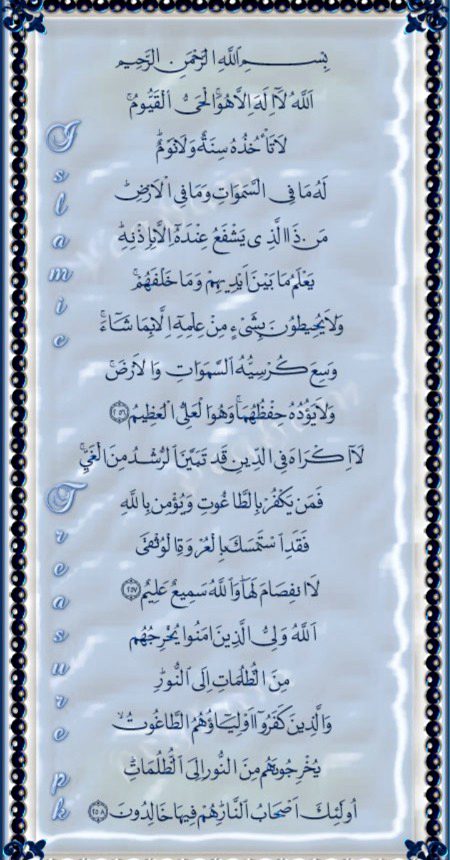 بِسْمِ اللَّهِ الرَّحْمَٰنِ الرَّحِيمِ
اَللَّهُ لَآ اِلَهَ اِلَّا هُوَ ۚ اَلْحَىُّ الْقَيُّومُ ۚ
لَا تَأْخُذُهُ سِنَةٌ وَلَا نَوْمٌ ؕ
لَهُ مَا فِى السَّمَوَاتِ وَمَا فِى الْاَرْضِ ؕ
مَنْ ذَا الَّذِى يَشْفَعُ عِنْدَهُٓ اِلَّا بِاِذْنِهٖ ؕ
يَعْلَمُ مَا بَيْنَ اَيْدِيهِمْ وَمَا خَلْفَهُمْ ۚ
وَلَا يُحِيطُونَ بِشَىْءٍ مِنْ عِلْمِهٖٓ اِلَّا بِمَا شَآءَ ۚ
وَسِعَ كُرْسِيُّهُ السَّمَوَاتِ وَالْاَرْضَ ۚ
وَلَا يَؤُدُهُ حِفْظُهُمَا ۚ وَهُوَ الْعَلِىُّ الْعَظِيمُ ﴿٢٥٦﴾
لَآ اِكْرَاهَ فِى الدِّينِ قَدْ تَبَيَّنَ الرُّشْدُ مِنَ الْغَىِّ ۚ
فَمَنْ يَكْفُرْ بِالطَّاغُوتِ وَيُؤْمِنْ بِاللَّهِ
فَقَدِ اسْتَمْسَكَ بِالْعُرْوَةِ الْوُثْقَى
لَا انْفِصَامَ لَهَا ؕ وَاللَّهُ سَمِيعٌ عَلِيمٌ ﴿٢٥٧﴾
اَللَّهُ وَلِىُّ الَّذِينَ اٰمَنُوا يُخْرِجُهُمْ
مِنَ الظُّلُمَاتِ اِلَى النُّورِ ؕ
وَالَّذِينَ كَفَرُوٓا اَوْلِيَآؤُهُمُ الطَّاغُوتُ ۙ
يُخْرِجُونَهُمْ مِنَ النُّورِ اِلَى الظُّلُمَاتِ ؕ
اُولَئِكَ اَصْحَابُ النَّارِ ۚ هُمْ فِيهَا خَالِدُونَ ﴿٢٥٨﴾
Islamic
Treasure pk